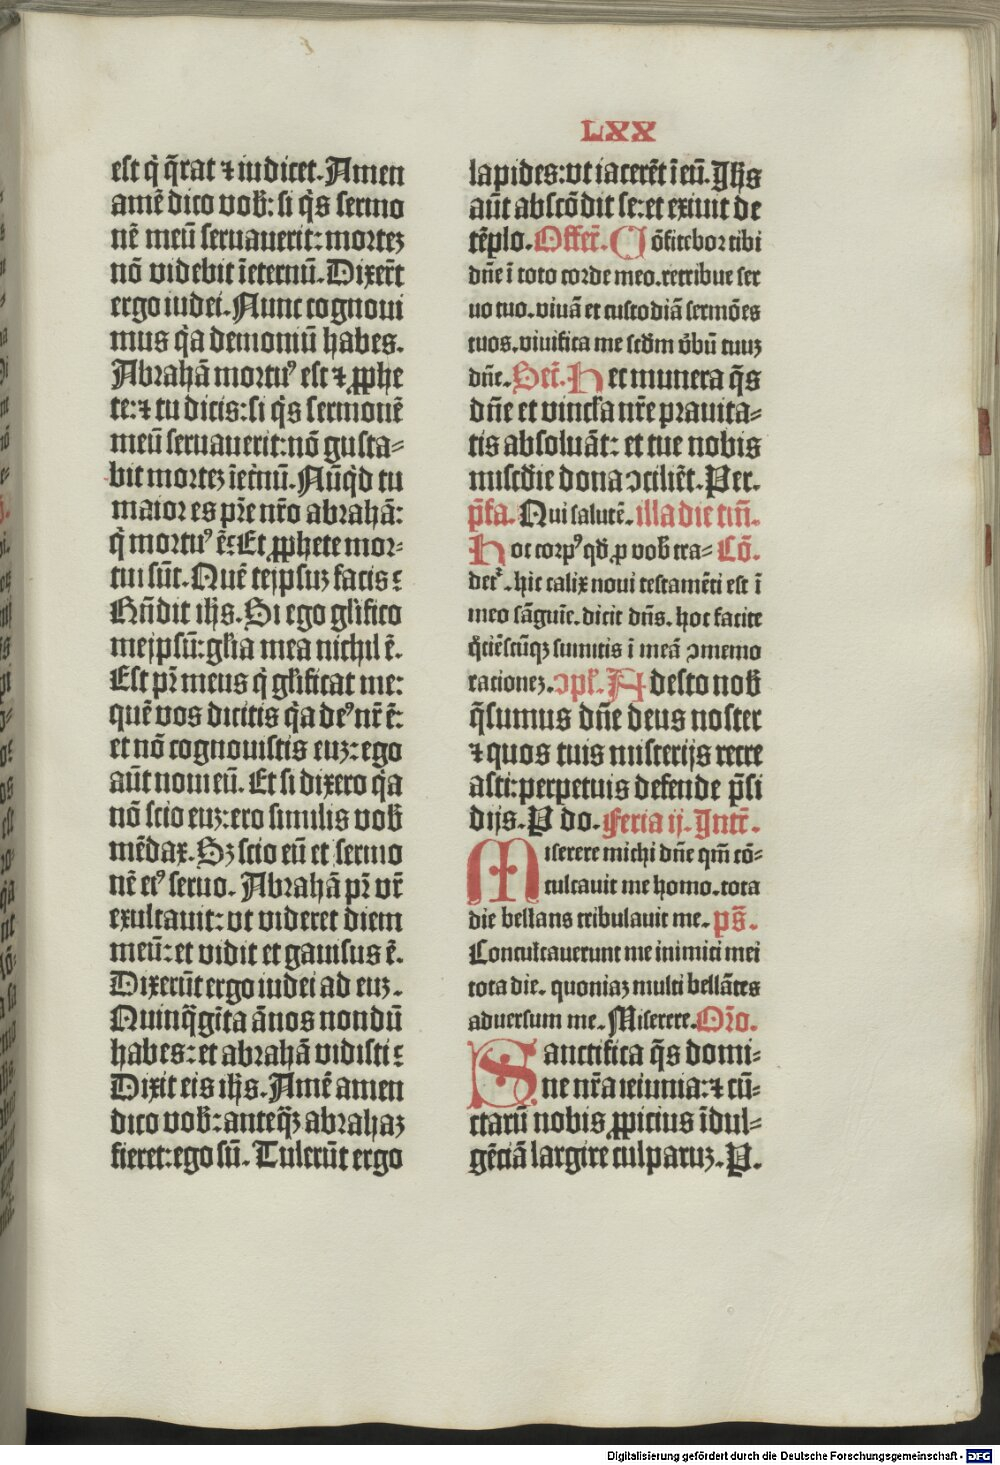 LXX
est q̇ q̄rat ⁊ iudicet. Amen
amē dico vob̄: si q̇s sermo
nē meū seruauerit: mortez
nō videbit īeternū. Dixer̄t
ergo iudei. Nunc cognoui
mus q̇a demoniū habes.
Abrahā mortuꝰ est ⁊ ꝓphe
te: ⁊ tu dicis: si q̇s sermonē
meū seruauerit: nō gusta⸗
bit mortez īet̄nū. Nūq̇d tu
maior es pr̄e nr̄o abrahā:
q̇ mortuꝰ ē: Et ꝓphete mor⸗
tui sūt. Quē teipsuz facis:
Rn̄dit ih̄s. Si ego glīfico
meipsū: glīa mea nichil ē.
Est pr̄ meus q̇ glīficat me:
quē vos dicitis q̇a deꝰ nr̄ ē:
et nō cognouistis euz: ego
aūt noui eū. Et si dixero q̇a
nō scio euz: ero similis vob̄
mēdax. Sz scio eū et sermo
nē eiꝰ seruo. Abrahā pr̄ vr̄
exultauit: vt videret diem
meū: et vidit et gauisus ē.
Dixerūt ergo iudei ad euz.
Quinq̄gīta ānos nondū
habes: et abrahā vidisti:
Dixit eis ih̄s. Amē amen
dico vob̄: anteq̄z abrahaz
fieret: ego sū. Tulerūt ergo
lapides: vt iacerēt ī eū. Ih̄s
aūt abscōdit se: et exiuit de
tēplo. Offer̄. Cōfitebor tibi
dn̄e ī toto corde meo. retribue ser
uo tuo. viuā et custodiā sermōes
tuos. viuifica me scd̄m v̄bū tuuz
dn̄e. Secr̄. Hec munera q̄s
dn̄e et vincl̄a nr̄e prauita⸗
tis absoluāt: et tue nobis
mis̄cdie dona ↄciliēt. Per.
p̄fa. Qui salutē. illa die tm̄.
Hoc corpꝰ qd̄ ꝓ vob̄ tra⸗ Cō.
det̄. hic calix noui testamēti est ī
meo sāguīe. dicit dn̄s. hoc facite
q̇ciēscūqꝫ sumitis ī meā ↄmemo
rationez. ↄpl̄. Adesto nob̄
q̄sumus dn̄e deus noster
⁊ quos tuis misterijs recre
asti: perpetuis defende p̄si
dijs. P do. Feria ij. Intr̄.
Miserere michi dn̄e qm̄ cō⸗
culcauit me homo. tota
die bellans tribulauit me. ps̄.
Conculcauerunt me inimici mei
tota die. quoniaz multi bellātes
aduersum me. Miserere. Or̄o.
Sanctifica q̄s domi⸗
ne nr̄a ieiunia: ⁊ cū⸗
ctarū nobis ꝓpicius īdul⸗
gētiā largire culparuz. P.
Digitalisierung gefördert durch die Deutsche Forschungsgemeinschaft - DFG